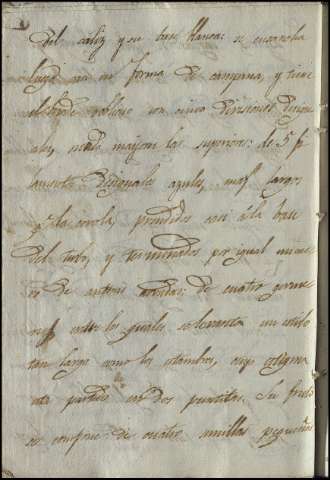 del caliz y su base blanca: se ensancha
luego en forma de campana, y tiene
el borde obliquo con cinco divisiones desigua
les, siendo mayores las superiores: de 5 fi
lamentos desiguales azules, mas largos
q.e la corola prendidos casi á la base
del tubo, y terminados por igual nume
ro de anteras ovadas; de cuatro germe
nes entre los quales se levanta un estilo
tan largo como los estambres, cuyo estigma
esta partido en dos puntitas. Su fruto
se compone de cuatro semillas pequeñas